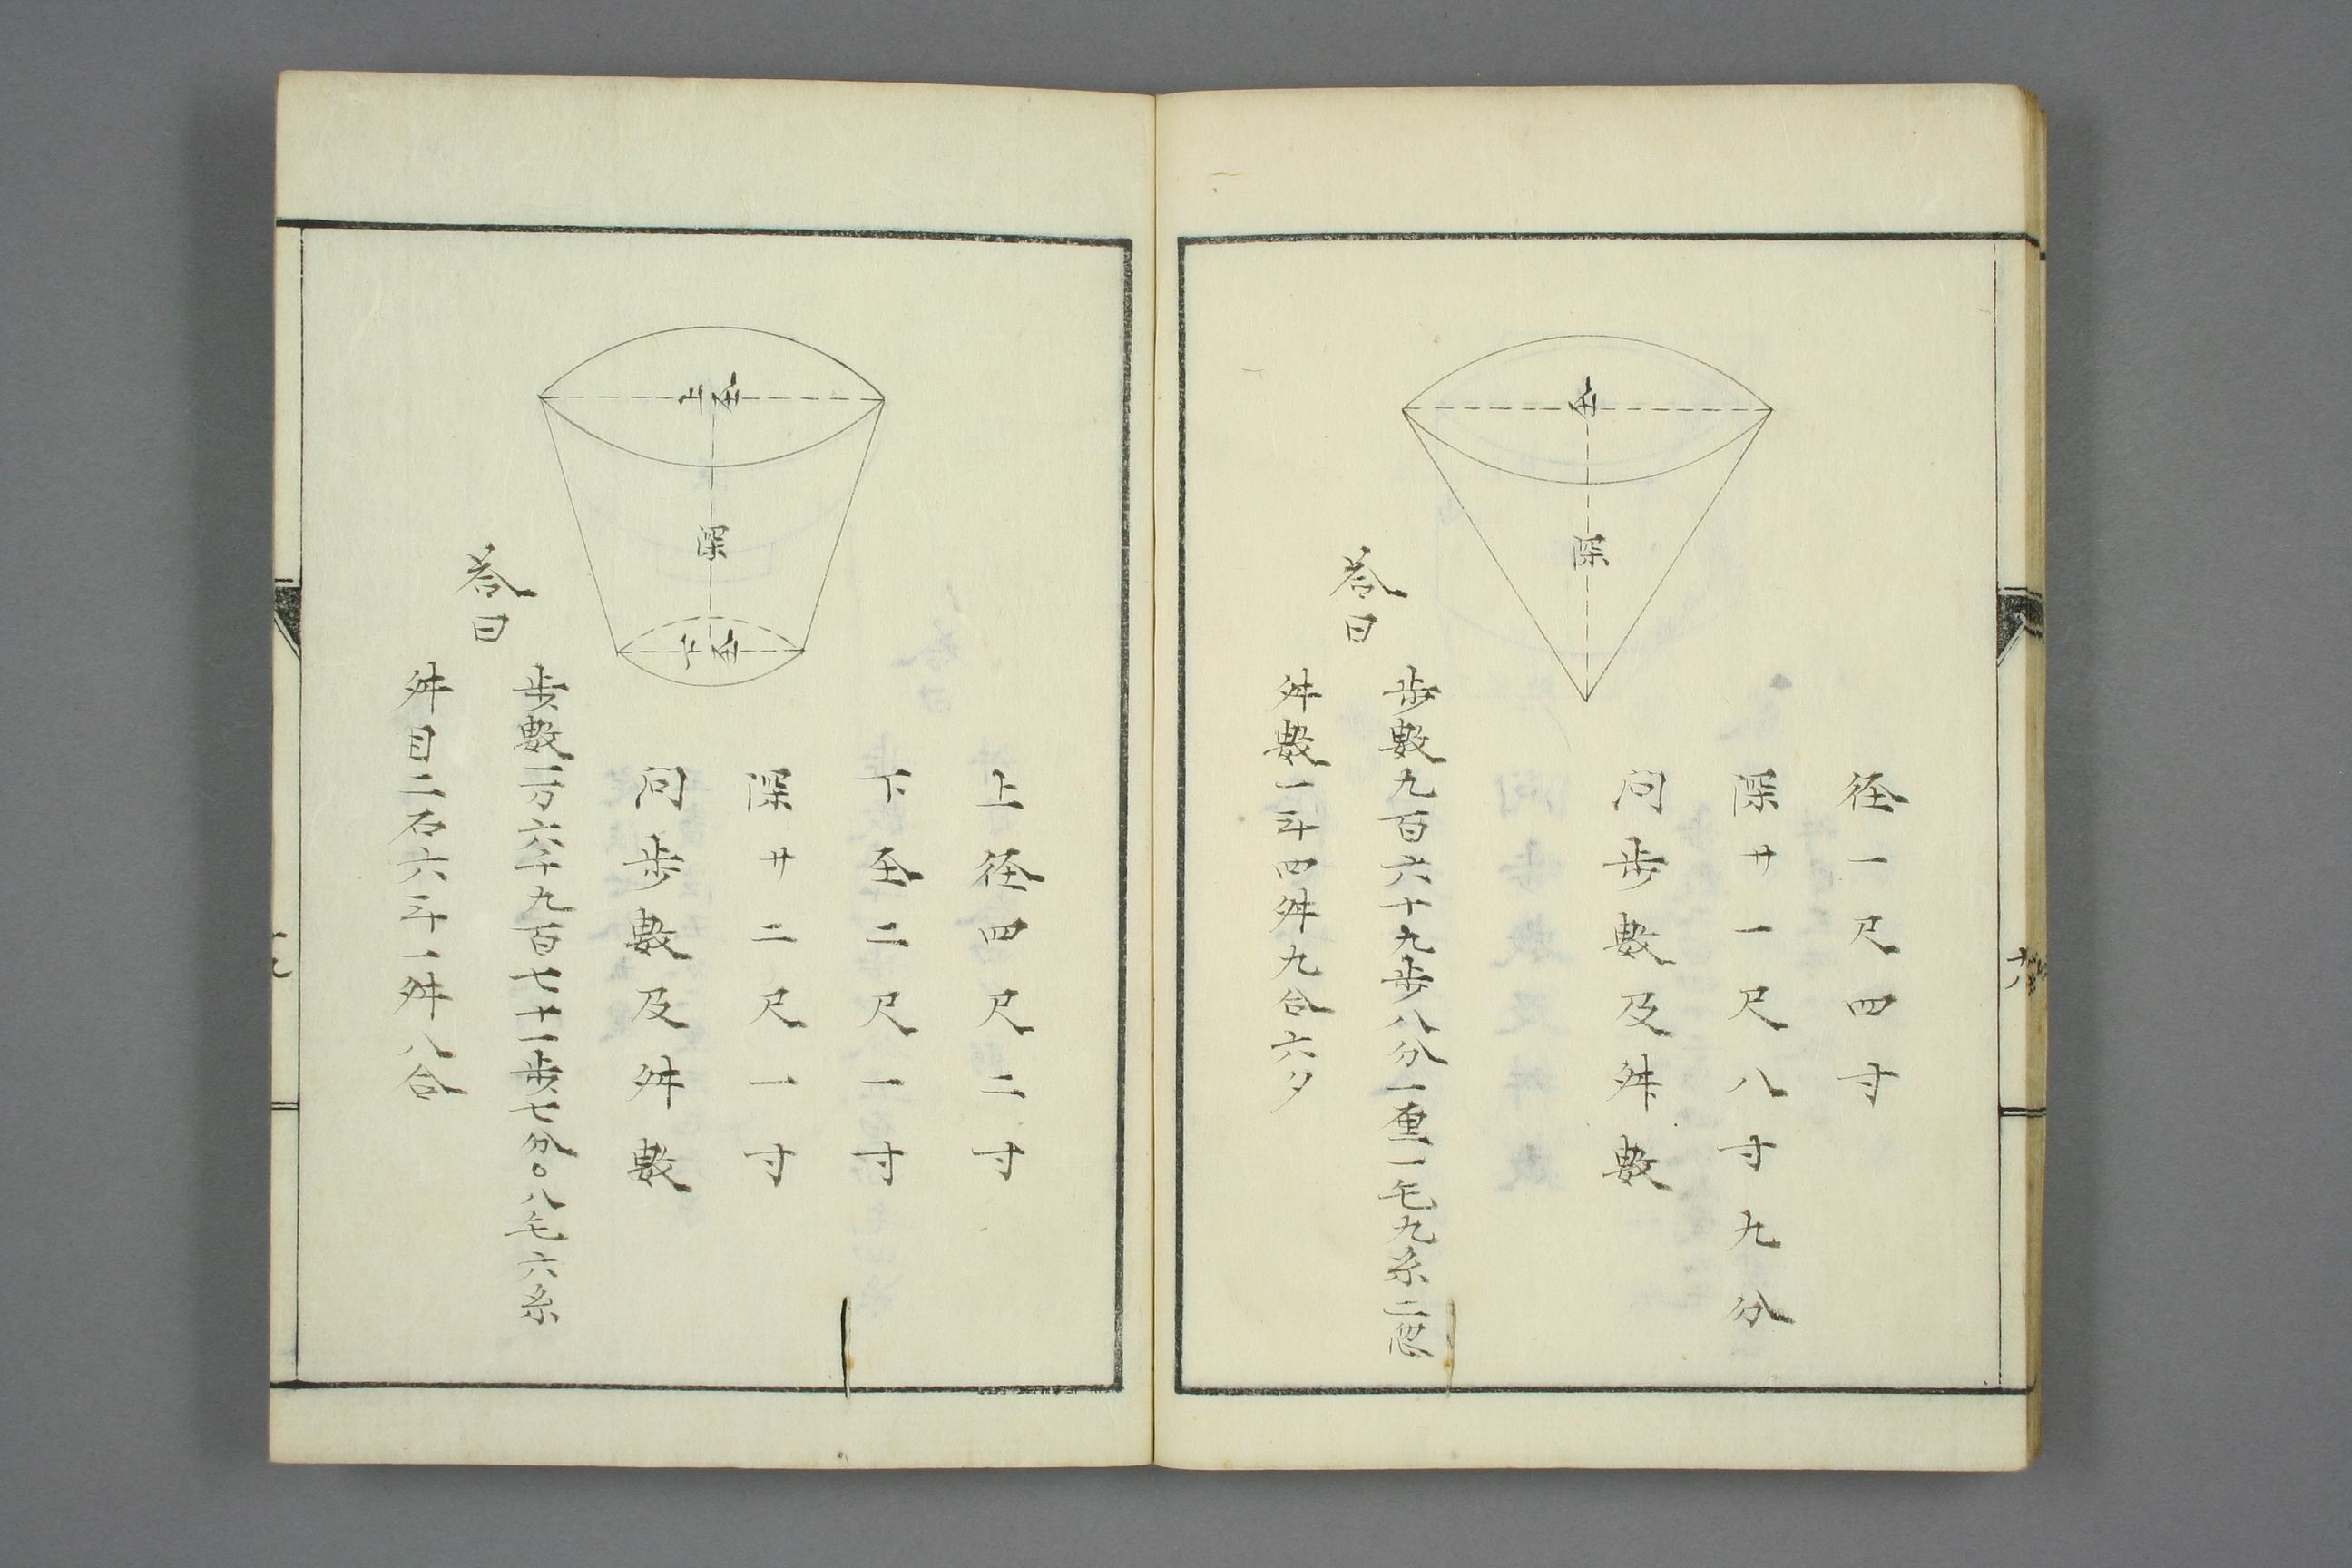 径
深
径一尺四寸
深サ一尺八寸九分
問歩數及舛數
荅曰
歩數九百六十九歩八分一厘一毛九糸二忽
舛數一斗四舛九合六夕
上径
深
下径
上径四尺二寸
下径二尺一寸
深サ二尺一寸
問歩數及舛數
荅曰
歩數一万六千九百七十一歩七分〇八毛六糸
舛目二石六斗一舛八合